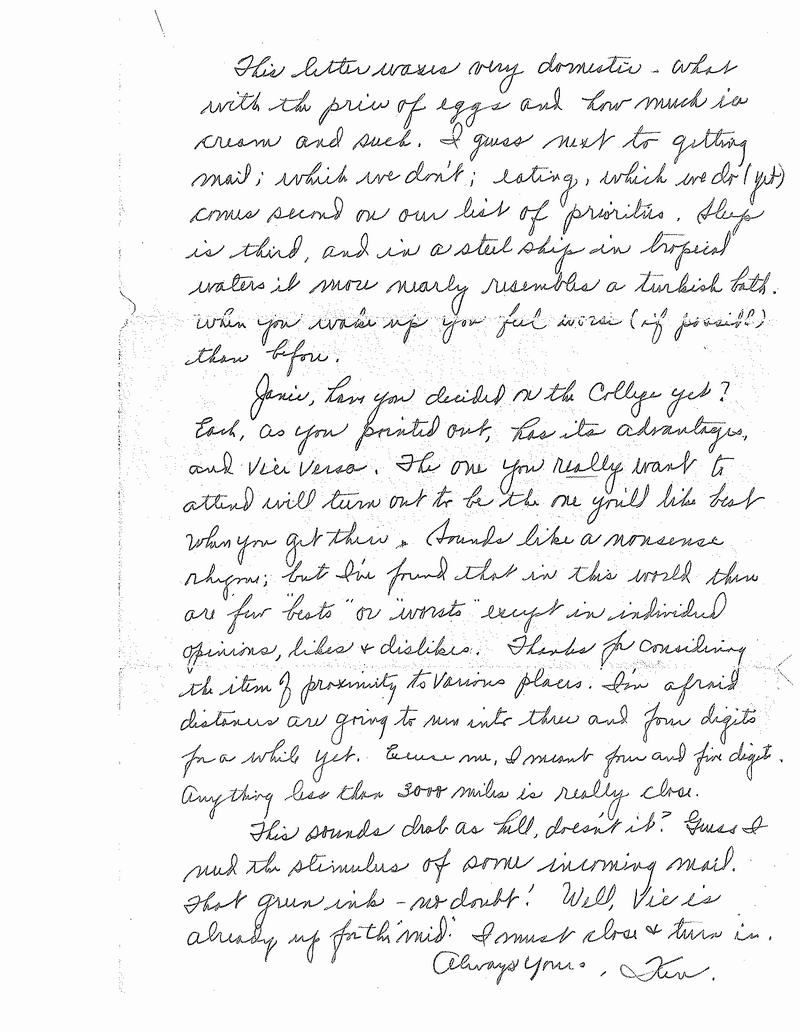 This letter waxes very domestic - what
with the price of eggs and how much ice
cream and such. I guess next to getting
mail; which we don't; eating, which we do (yet)
comes second on our list of priorities. Sleep
is third, and in a steel ship in tropical
waters it more nearly resembles a turkish bath.
When you wake up you feel worse (if possible)
than before.
Janie, have you decided on the College yet?
Each, as you pointed out, has its advantages,
and Vice Versa. The one you really want to
attend will turn out to be the one you'll like best
when you get there. Sounds like a nonsense
rhyme; but I've found that in this world there
are few "bests" or "worsts" except in individual
opinions, likes & dislikes. Thanks for considering
the item of proximity to various places. I'm afraid
distances are going to run into three and four digits
for a while yet. Excuse me, I meant four and five digits.
Anything less than 3000 miles is really close.
This sounds drab as hell, doesn't it? Guess I
need the stimulus of some incoming mail.
That green ink - no doubt! Well, Vic is
already up for the "mid". I must close & turn in.
Always Yours, Ken.